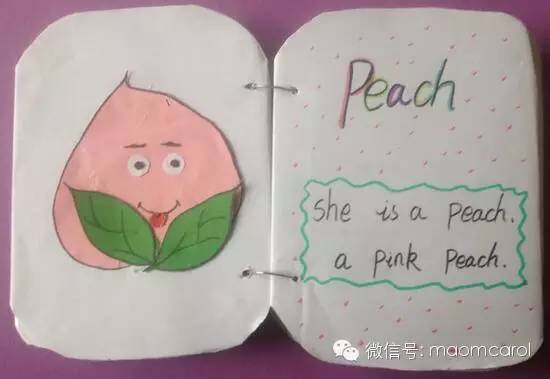 Peach
She is a peach.
a pink peach.
微信号: maomcarol